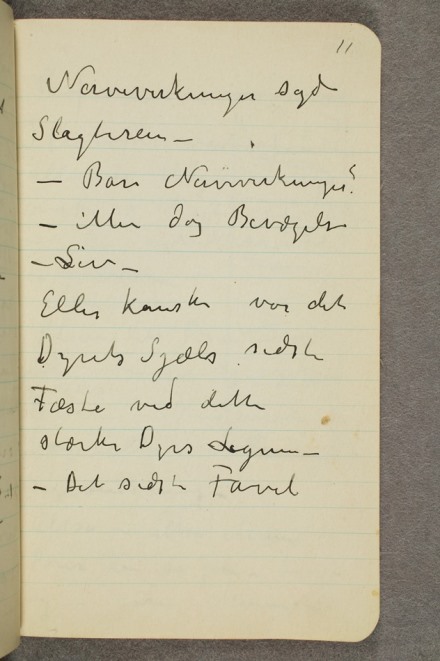 11
Nervevirkninger sagde
Slagteren –
– Bare Nervevirkninger?
– iller dog Bevægelse
– Liv –
Eller kanske var det
Dyrets Sjæls sidste
Fæste ved dette
stærke Dyrs Legeme –
– Det sidste Farvel